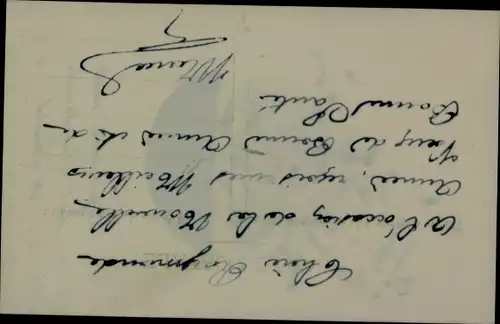 Chère Raymonde
A l'occasion de la Nouvelle
Année, reçois mes Meilleurs
Vœux de Bonne Année et de
Bonne Santé